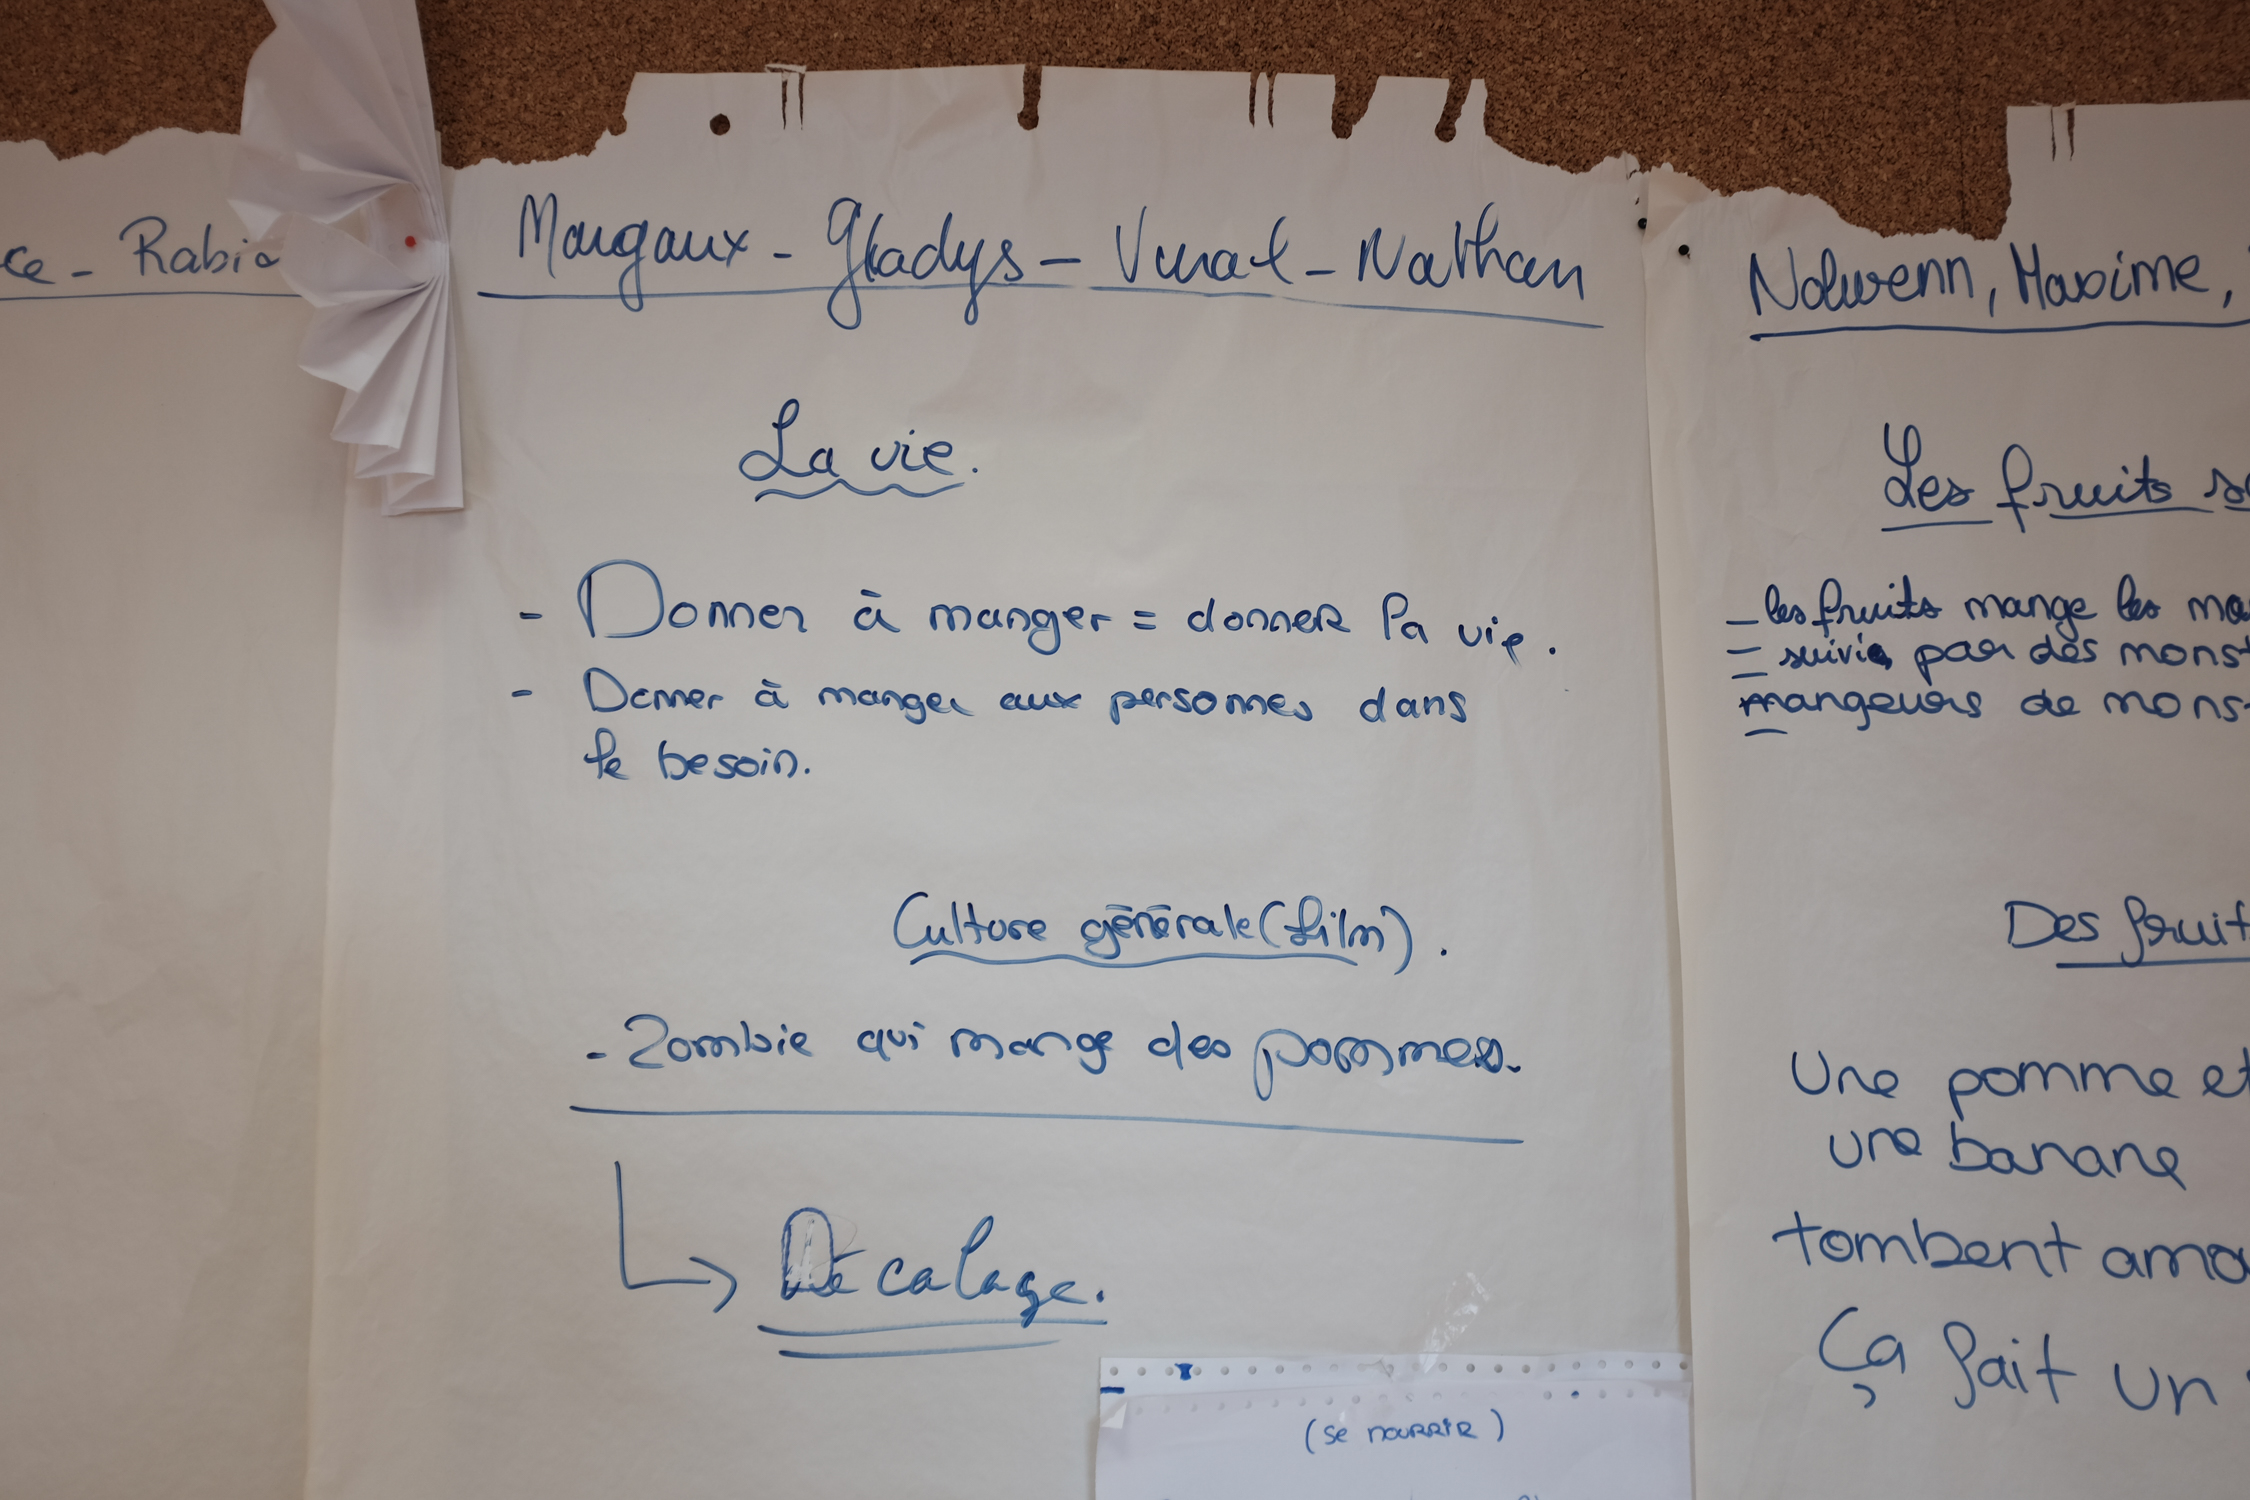 Rabia
Margaux - Gladys - Vural - Nathan
La vie.
- Donner à manger = donner la vie.
- Donner à manger aux personnes dans
le besoin.
Culture générale (film).
- Zombie qui mange des pommes.
Décalage.
(se nourrir)
Nolwenn, Maxime,
Les fruits
- les fruits mange les
- suivie par des
mangeurs de
Des
Une pomme et
une banane
tombent
Ça fait un